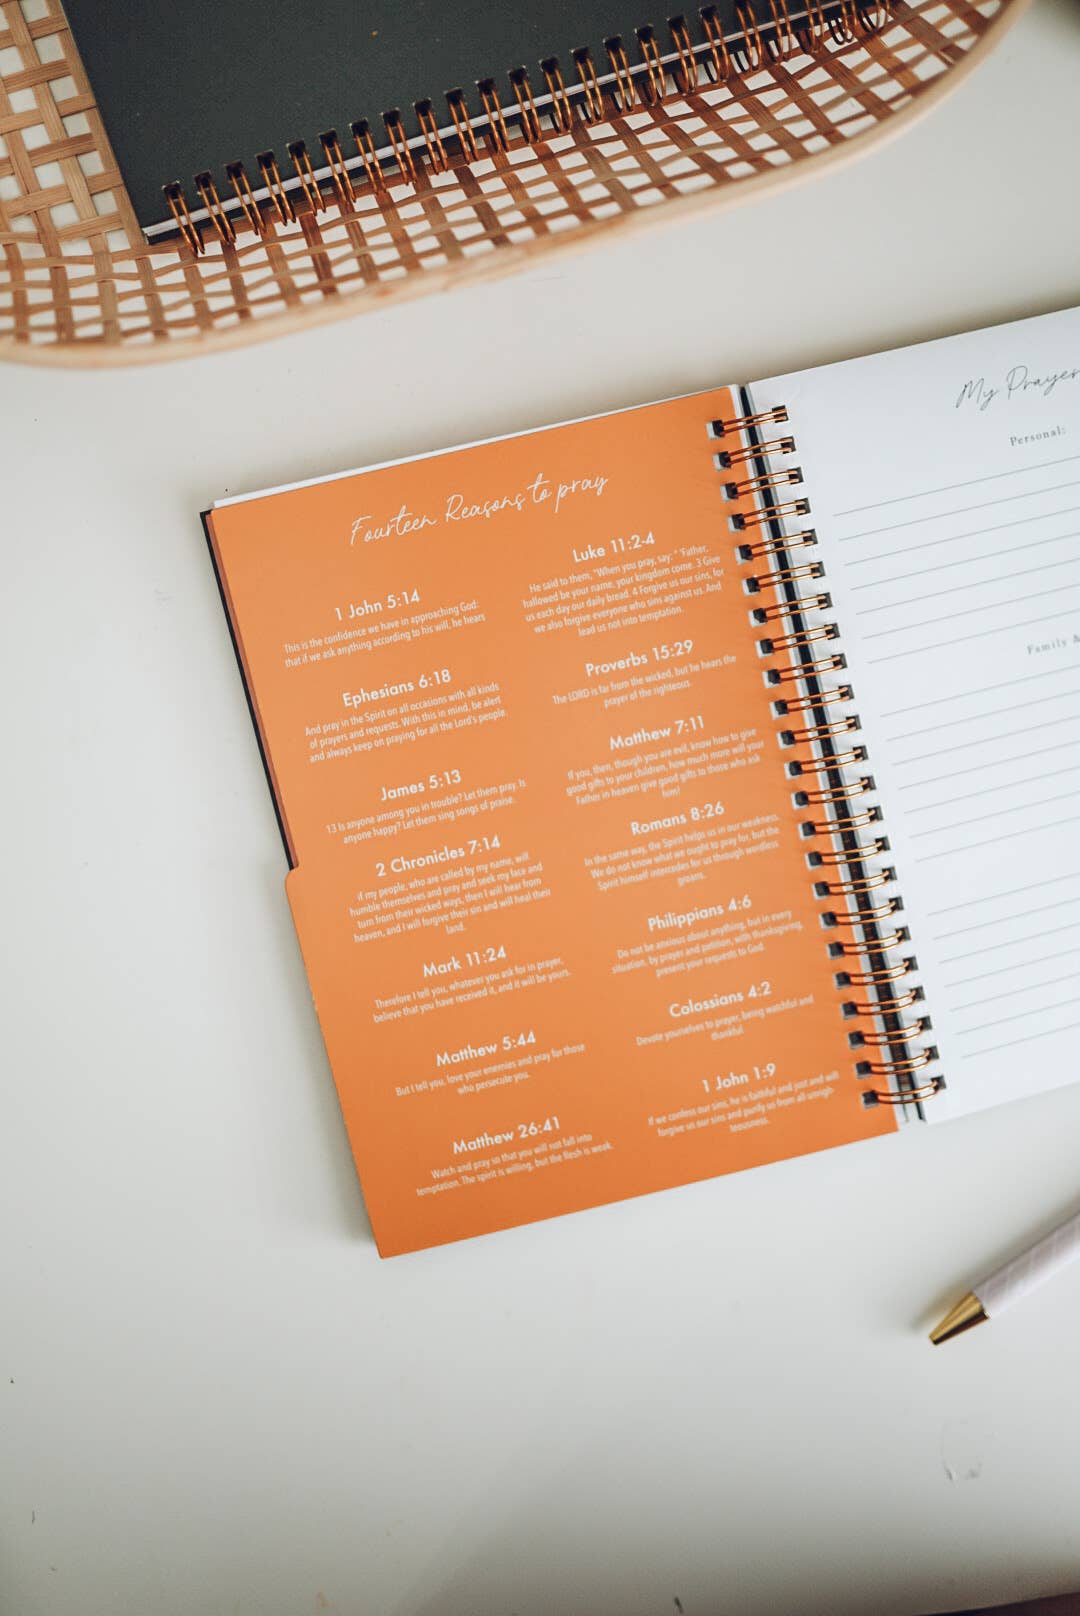 Fourteen Reasons to pray
1 John 5:14
This is the confidence we have in approaching God:
that if we ask anything according to his will, he hears
Ephesians 6:18
And pray in the Spirit on all occasions with all kinds
of prayers and requests. With this in mind, be alert
and always keep on praying for all the Lord's people.
James 5:13
13 Is anyone among you in trouble? Let them pray. Is
anyone happy? Let them sing songs of praise.
2 Chronicles 7:14
if my people, who are called by my name, will
humble themselves and pray and seek my face and
turn from their wicked ways, then I will hear from
heaven, and I will forgive their sin and will heal their
land.
Mark 11:24
Therefore I tell you, whatever you ask for in prayer,
believe that you have received it, and it will be yours.
Matthew 5:44
But I tell you, love your enemies and pray for those
who persecute you.
Matthew 26:41
Watch and pray so that you will not fall into
temptation. The spirit is willing, but the flesh is weak.
Luke 11:2-4
He said to them, "When you pray, say: " 'Father,
hallowed be your name, your kingdom come. 3 Give
us each day our daily bread. 4 Forgive us our sins, for
we also forgive everyone who sins against us. And
lead us not into temptation.
Proverbs 15:29
The LORD is far from the wicked, but he hears the
prayer of the righteous.
Matthew 7:11
If you, then, though you are evil, know how to give
good gifts to your children, how much more will your
Father in heaven give good gifts to those who ask
him!
Romans 8:26
In the same way, the Spirit helps us in our weakness.
We do not know what we ought to pray for, but the
Spirit himself intercedes for us through wordless
groans.
Philippians 4:6
Do not be anxious about anything, but in every
situation, by prayer and petition, with thanksgiving,
present your requests to God.
Colossians 4:2
Devote yourselves to prayer, being watchful and
thankful.
1 John 1:9
If we confess our sins, he is faithful and just and will
forgive us our sins and purify us from all unrigh-
teousness.
My Prayer
Personal:
Family